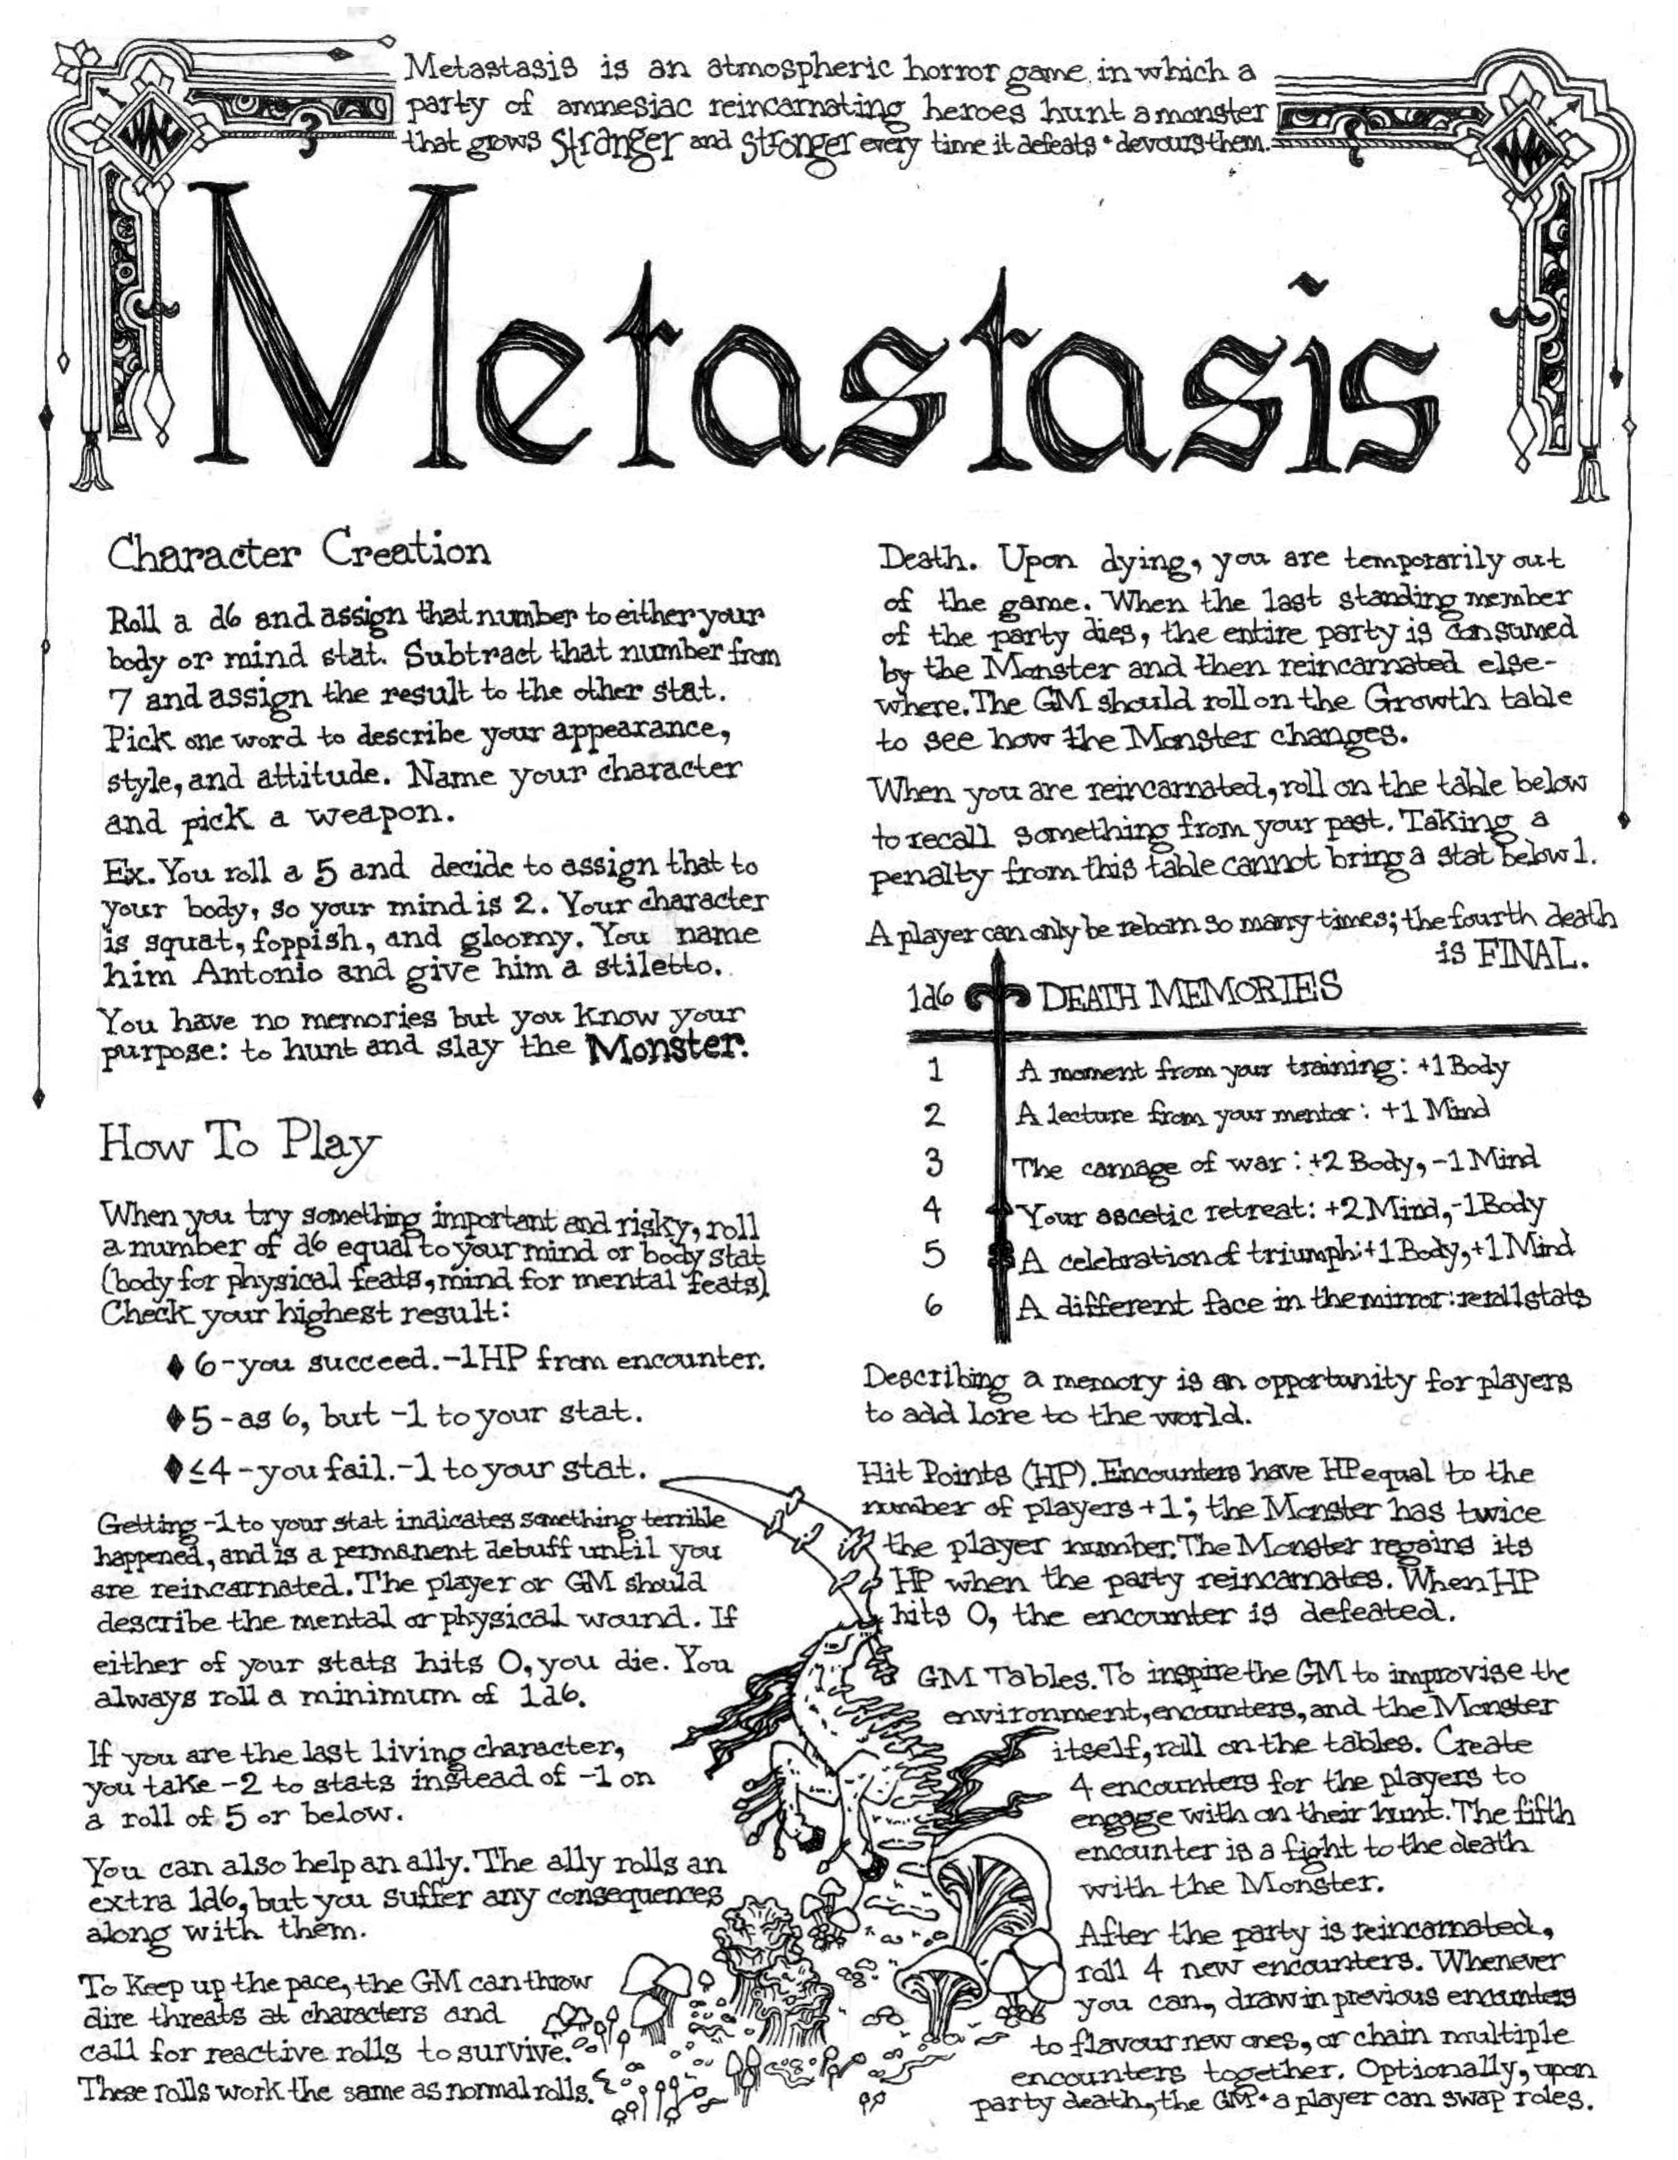 Metastasis is an atmospheric horror game in which a
party of amnesiac reincarnating heroes hunt a monster
that grows Stranger and Stronger every time it defeats + devours them.
Metastasis
Character Creation
Roll a d6 and assign that number to either your
body or mind stat. Subtract that number from
7 and assign the result to the other stat.
Pick one word to describe your appearance,
style, and attitude. Name your character
and pick a weapon.
Ex. You roll a 5 and decide to assign that to
your body, so your mind is 2. Your character
is squat, foppish, and gloomy. You name
him Antonio and give him a stiletto.
You have no memories but you know your
purpose: to hunt and slay the Monster.
How To Play
When you try something important and risky, roll
a number of d6 equal to your mind or body stat
(body for physical feats, mind for mental feats)
Check your highest result:
♦ 6 - you succeed. -1HP from encounter.
♦ 5 - as 6, but -1 to your stat.
♦ ≤4 - you fail. -1 to your stat.
Getting -1 to your stat indicates something terrible
happened, and is a permanent debuff until you
are reincarnated. The player or GM should
describe the mental or physical wound. If
either of your stats hits 0, you die. You
always roll a minimum of 1d6.
If you are the last living character,
you take -2 to stats instead of -1 on
a roll of 5 or below.
You can also help an ally. The ally rolls an
extra 1d6, but you suffer any consequences
along with them.
To keep up the pace, the GM can throw
dire threats at characters and
call for reactive rolls to survive.
These rolls work the same as normal rolls.
Death. Upon dying, you are temporarily out
of the game. When the last standing member
of the party dies, the entire party is consumed
by the Monster and then reincarnated else-
where. The GM should roll on the Growth table
to see how the Monster changes.
When you are reincarnated, roll on the table below
to recall something from your past. Taking a
penalty from this table cannot bring a stat below 1.
A player can only be reborn so many times; the fourth death
is FINAL.
1d6 DEATH MEMORIES
1 A moment from your training: +1 Body
2 A lecture from your mentor: +1 Mind
3 The carnage of war: +2 Body, -1 Mind
4 Your ascetic retreat: +2 Mind, -1 Body
5 A celebration of triumph: +1 Body, +1 Mind
6 A different face in the mirror: reroll stats
Describing a memory is an opportunity for players
to add lore to the world.
Hit Points (HP). Encounters have HP equal to the
number of players +1; the Monster has twice
the player number. The Monster regains its
HP when the party reincarnates. When HP
hits 0, the encounter is defeated.
GM Tables. To inspire the GM to improvise the
environment, encounters, and the Monster
itself, roll on the tables. Create
4 encounters for the players to
engage with on their hunt. The fifth
encounter is a fight to the death
with the Monster.
After the party is reincarnated,
roll 4 new encounters. Whenever
you can, draw in previous encounters
to flavour new ones, or chain multiple
encounters together. Optionally, upon
party death, the GM + a player can swap roles.